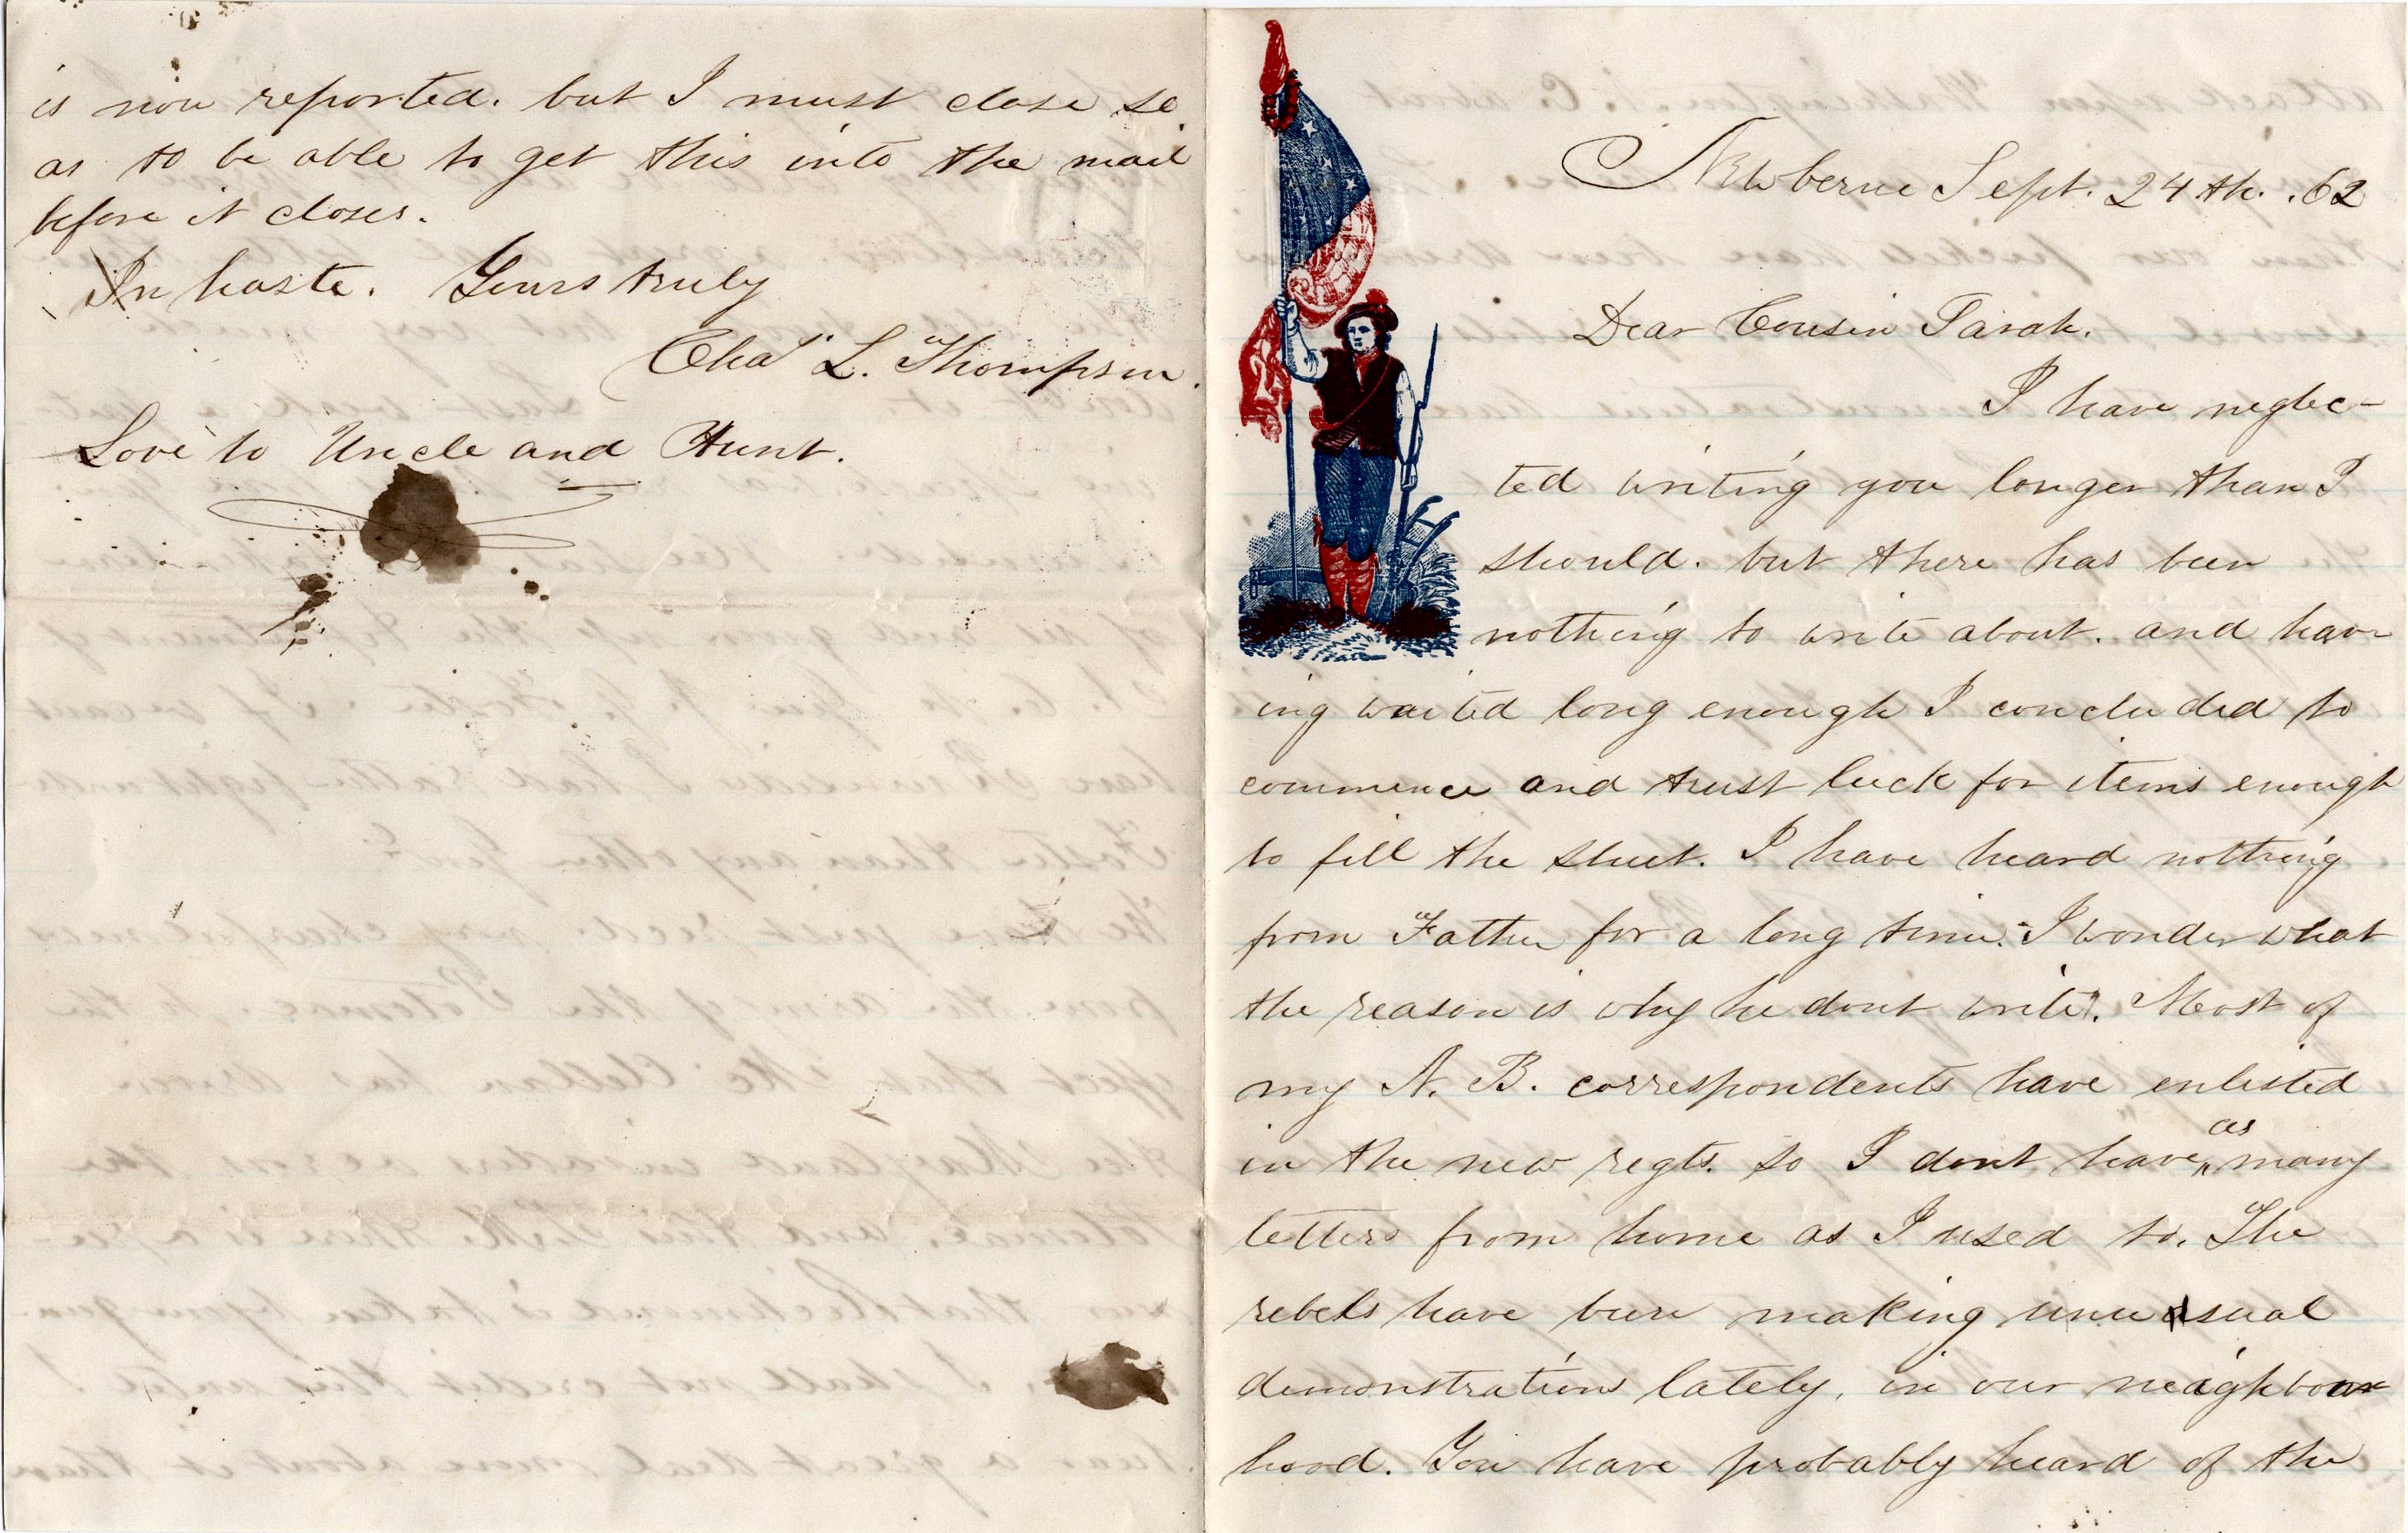 Newberne Sept. 24th. .62
Dear Cousin Sarah.
I have neglec-
ted writing you longer than I
should. but there has been
nothing to write about. and hav-
ing waited long enough I concluded to
commence and trust luck for items enough
to fill the sheet. I have heard nothing
from Father for a long time. I wonder what
the reason is why he dont write. Most of
my N. B. correspondents have enlisted
in the new regts. so I dont have as many
letters from home as I used to. The
rebels have been making unusual
demonstrations lately, in our neighbour
hood. You have probably heard of the
is now reported. but I must close so
as to be able to get this into the mail
before it closes.
In haste. Yours truly
Chas L. Thompson.
Love to Uncle and Aunt.